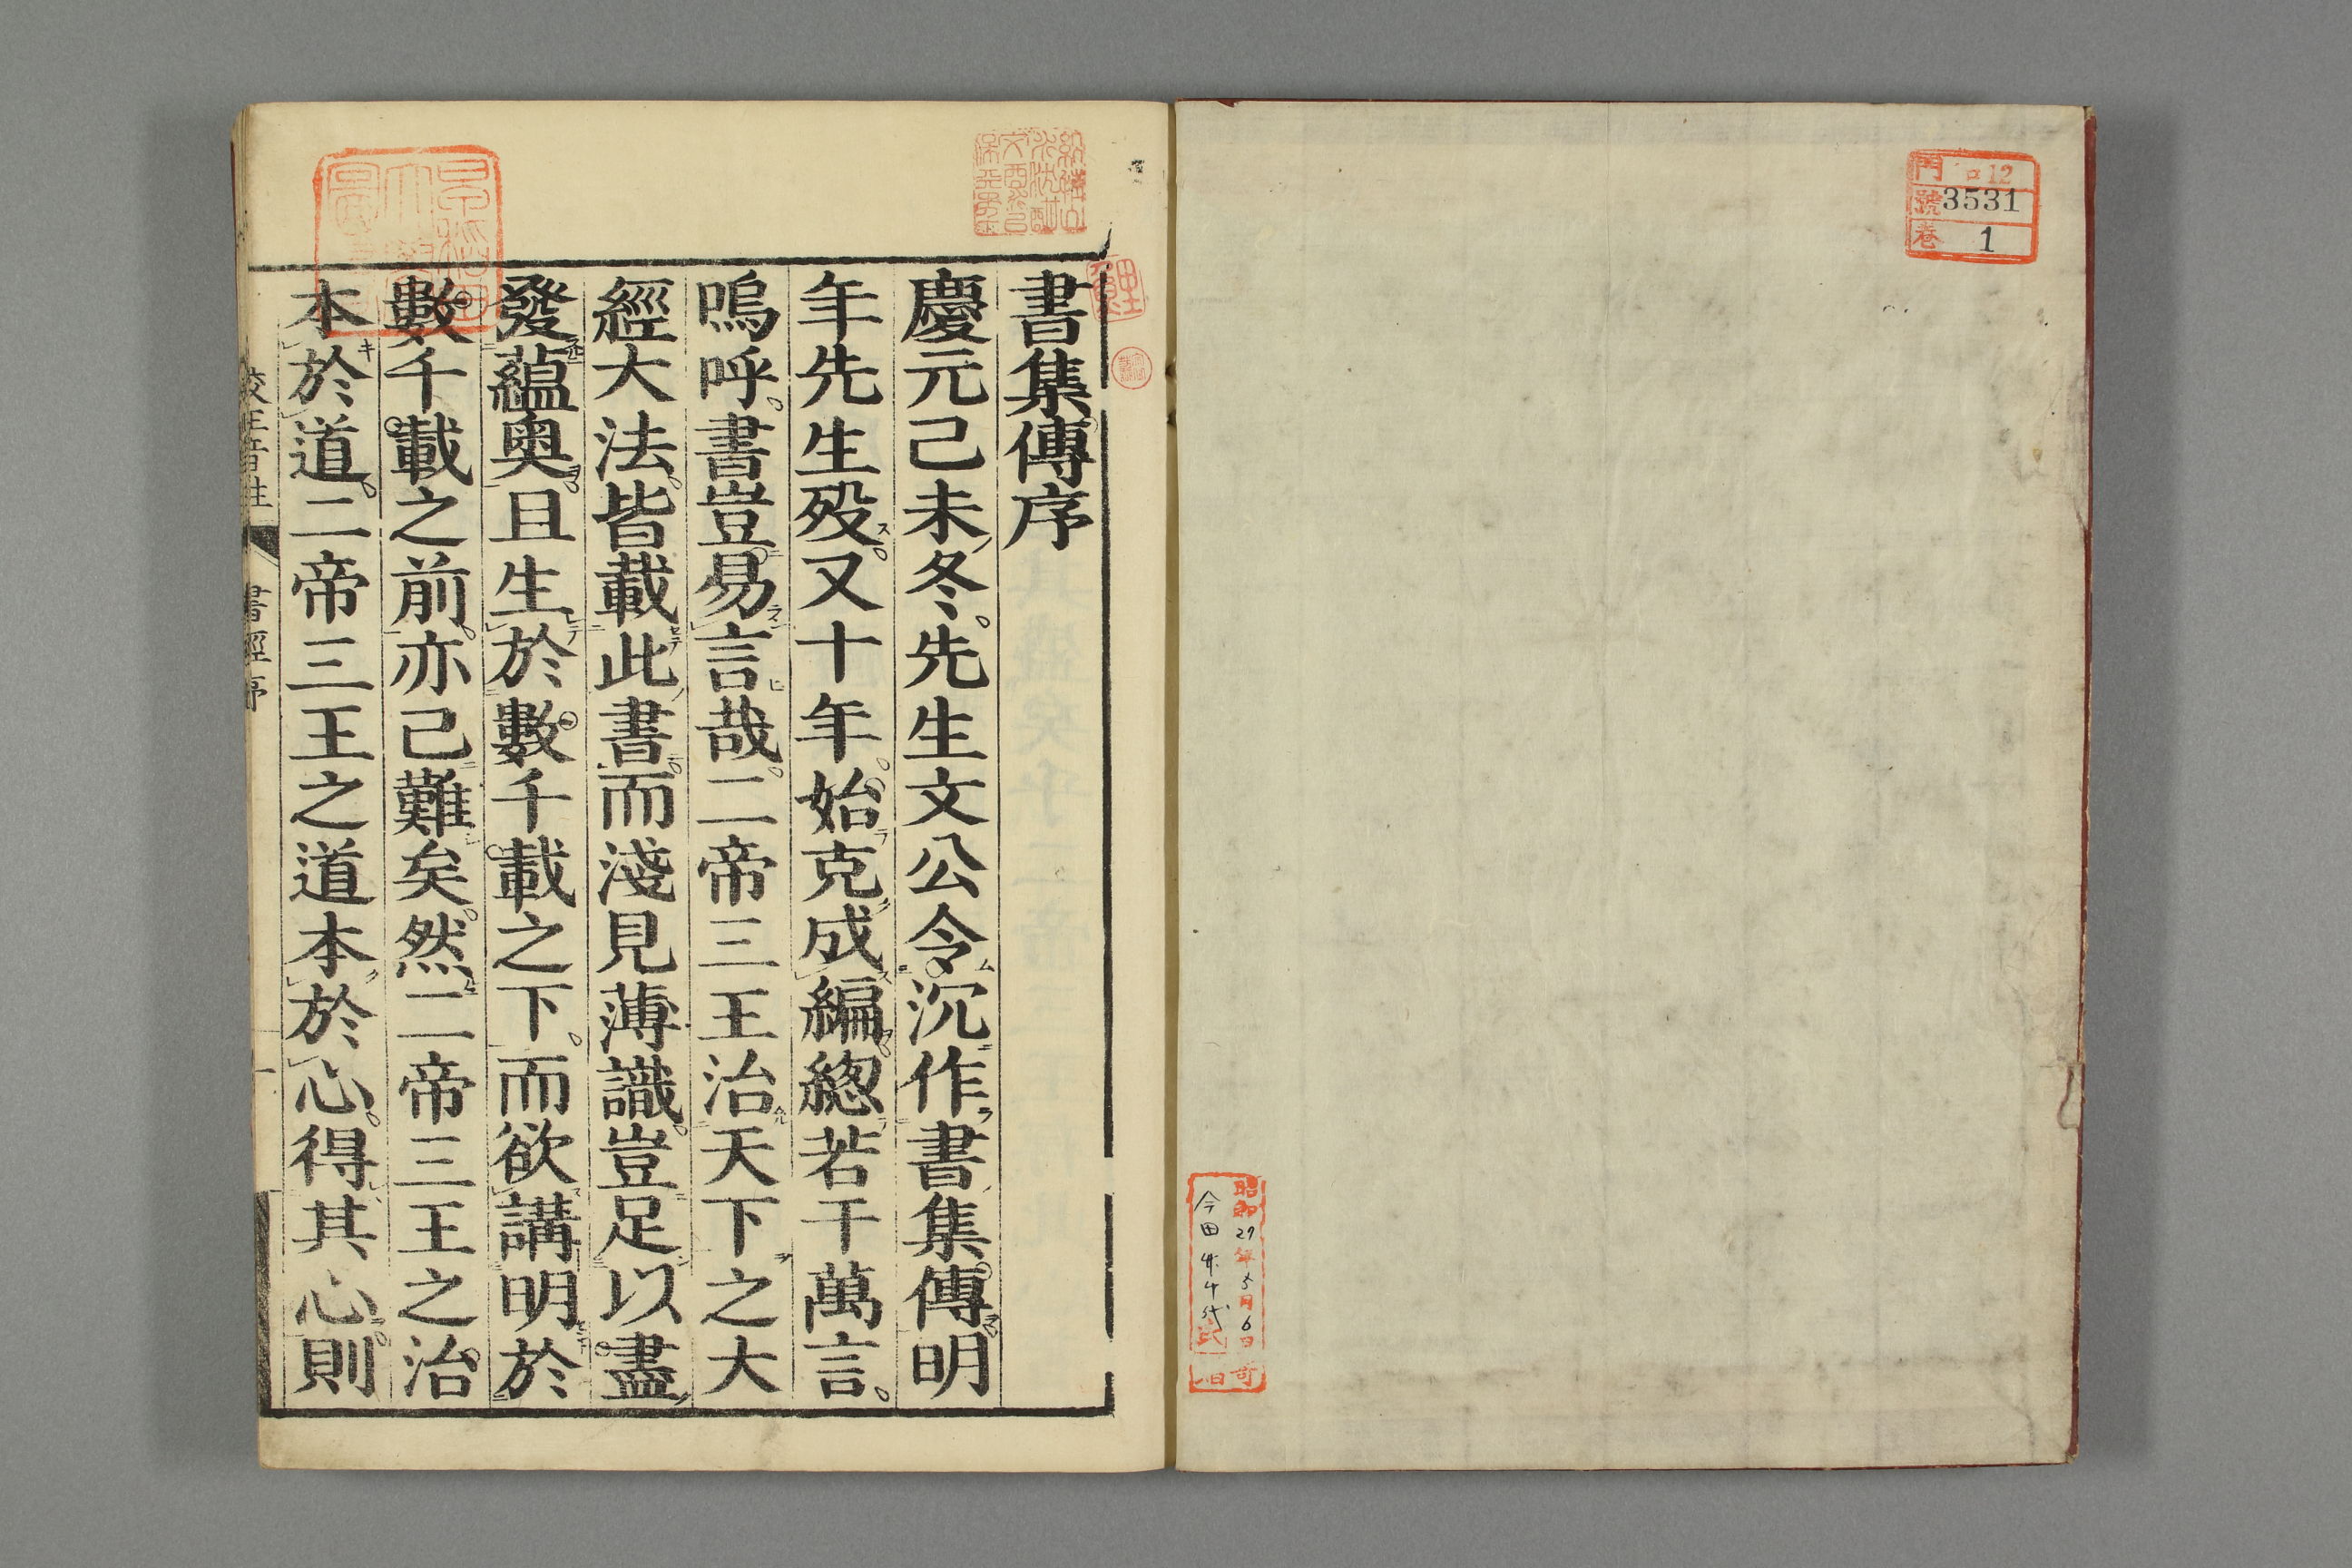 門 ロ12
號 3531
巻 1
昭和27年5月6日寄
今田 氏
書集傳序
慶元己未冬先生文公令沉作書集傳明
年先生歿又十年始克成編緫若干萬言
嗚呼書豈易言哉二帝三王治天下之大
經大法皆載此書而淺見薄識豈足以盡
發蘊奥且生於數千載之下而欲講明於
數千載之前亦已難矣然二帝三王之治
本於道二帝三王之道本於心得其心則
書經序
一